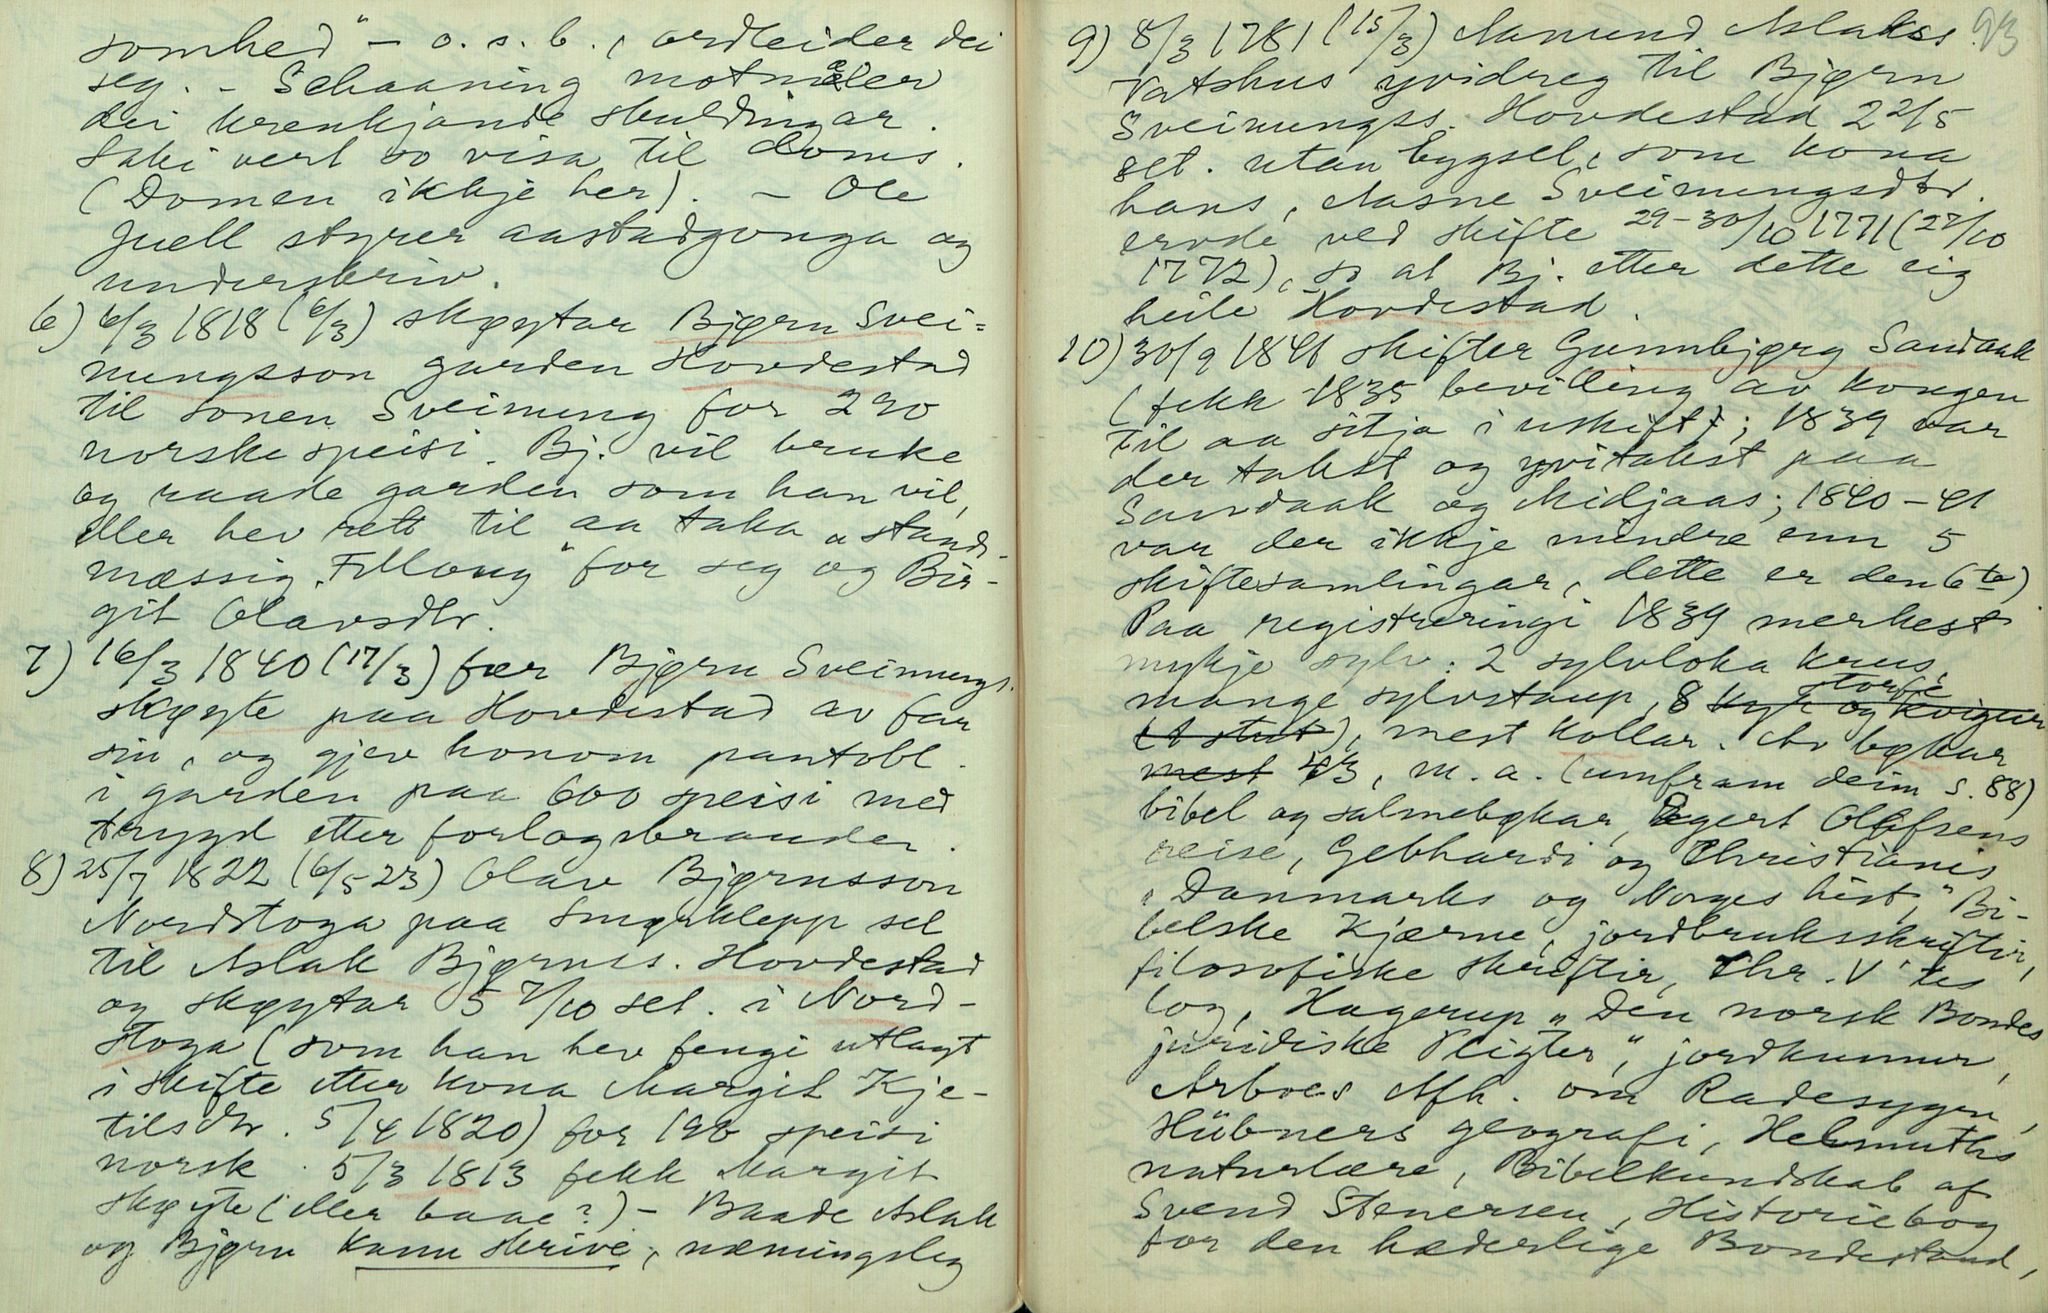 somhed" – o. s. b., ordleider dei
seg. – Schaaning motmæler
dei krenkjande skuldingar.
Saki vert so visa til doms.
(Domen ikkje her). – Ole
Juell styrer aastadgonga og
underskriv.
6) 6/3 1818 (6/3) skøytar Bjørn Svei=
nungsson garden Hovdestad
til sonen Sveinung for 290
norske speisi. Bj. vil bruke
og raade garden som han vil,
eller hev rett til aa taka "stands-
mæssig Follaug" for seg og Bir-
git Olavsdtr.
7) 16/3 1840 (17/3) fær Bjørn Sveinungs.
skøyte paa Hovdestad av far
sin, og gjev honom pantobl.
i garden paa 600 speisi med
trygd etter forlagsbrander.
8) 25/7 1822 (6/5 23) Olav Bjørnsson
Nordstoga paa Smørklepp sel
til Aslak Bjørnss. Hovdestad
og skøytar 5 7/10 set. i Nord-
stoga (som han hev fengi utlagt
i skifte etter kona Margit Kje-
tilsdtr. 5/4 1820) for 196 speisi
norsk. 5/3 1813 fekk Margit
skøyte (eller baae?) – Baade Aslak
og Bjørn kann skrive, næmingsleg
93
9) 8/3 1781 (15/3) Aamund Aslakss.
Vatshus yvidreg til Bjørn
Sveinungss. Hovdestad 2 2/5
set. utan bygsel, som kona
hans, Aasne Sveinungsdtr.
ervde ved skifte 29-30/10 1771 (27/10
1772), so at Bj. etter dette eig
heile Hovdestad.
10) 30/9 1841 skifter Gunnbjørg Sandaak
(fekk 1835 bevilling av kongen
til aa sitja i uskift; 1839 var
der takst og yvitakst paa
Sandaak og Midjaas; 1840–41
var der ikkje mindre enn 5
skiftesamlingar, dette er den 6te)
Paa registreringi 1839 merkest
mykje sylv: 2 sylvloka krus,
mange sylvstaup, 8 kyr og kvigur storfe
(1 stut), mest kollar. Av bøkar
mest 43, m. a. (umfram deim s. 88)
bibel og salmebøkar, Egert Olafsens
reise, Gebhardi og Christianis
"Danmarks og Norges hist," Bi-
belske Kjærne, jordbruksskrifter,
filosofiske skrifter, Chr. V' tes
lov, Hagerup "Den norsk Bondes
juridiske Pligter", jordkunnur,
Arboes Afh. om Radesygen,
Hübners geografi, Helmuths
naturlære, Bibelkundskab af
Svend Stenersen, Historiebog
for den hæderlige Bondestand,